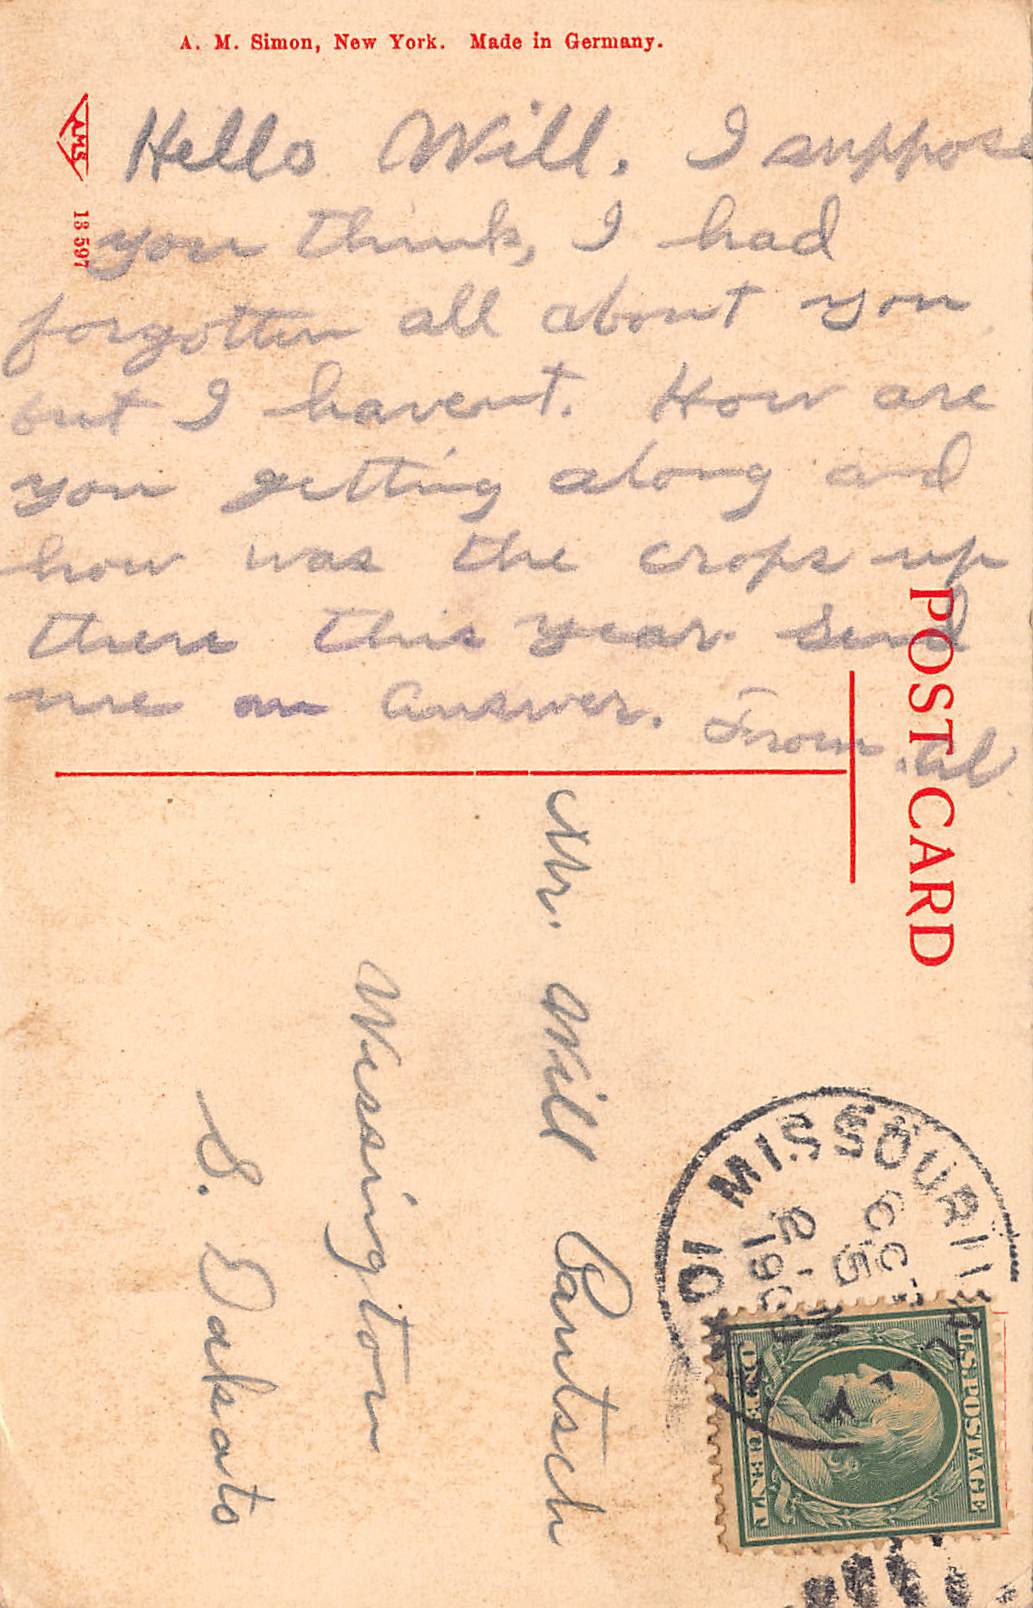 A. M. Simon, New York. Made in Germany.
AMS
13 597
Hello Will. I suppose
you think, I had
forgotten all about you
but I havent. How are
you getting along and
how was the crops up
there this year. Send
me an answer. From Al
POST CARD
Mr. Will Pantsch
Wessington
S. Dakota
MISSOURI
OCT
5
2
M
190
U.S. POSTAGE
ONE CENT